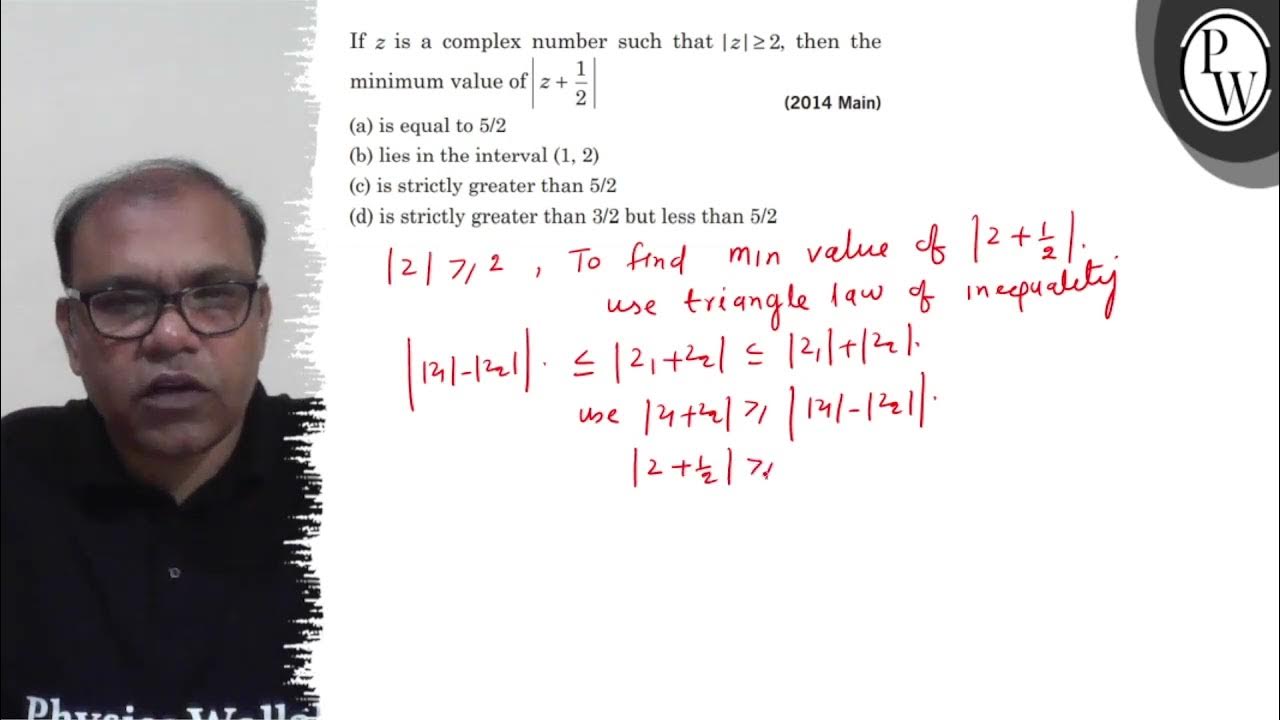 If z is a complex number such that |z| ≥ 2, then the
minimum value of |z + 1/2|
(2014 Main)
(a) is equal to 5/2
(b) lies in the interval (1, 2)
(c) is strictly greater than 5/2
(d) is strictly greater than 3/2 but less than 5/2
|z| ≥ 2, To find min value of |z + 1/2|.
use triangle law of inequality
||z1| - |z2||. ≤ |z1 + z2| ≤ |z1| + |z2|.
use |z1 + z2| ≥ ||z1| - |z2||.
|z + 1/2| ≥
PW